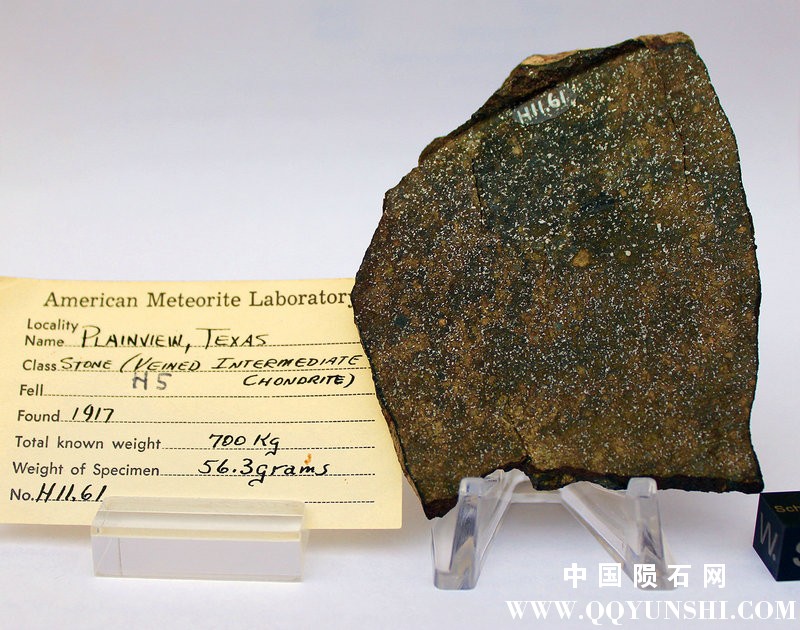 H11.61
American Meteorite Laboratory
Locality
Name PLAINVIEW, TEXAS
Class STONE (VEINED INTERMEDIATE
CHONDRITE)
H5
Fell
Found 1917
Total known weight 700 Kg
Weight of Specimen 56.3 grams
No. H11.61
Sch
W
S
中国陨石网
WWW.QQYUNSHI.COM